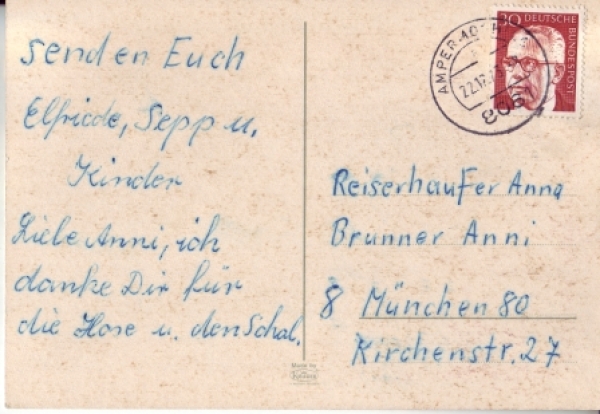 senden Euch
Elfriede, Sepp u.
Kinder
Liebe Anni, ich
danke Dir für
die Hose u. den Schal.
Made by
30 DEUTSCHE
BUNDESPOST
8061
Reiserhaufer Anna
Brunner Anni
8 München 80
Kirchenstr. 27